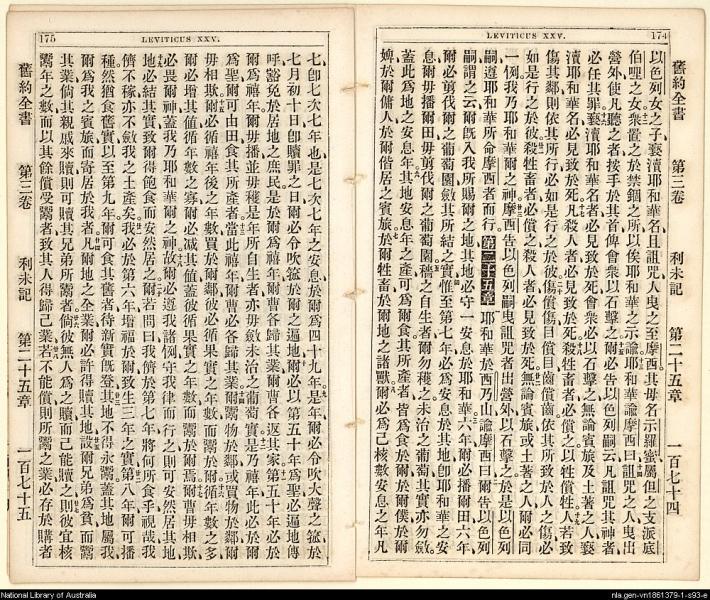 LEVITICUS XXV. 174
舊約全書 第三卷 利未記 第二十五章 一百七十四
以色列女之子褻瀆耶和華名且詛咒人曳之至摩西其母名示羅蜜屬但之支派底
伯哩之女衆置之於禁錮之所以俟耶和華之示諭耶和華諭摩西曰詛咒之人曳出
營外使凡聽之者按手於其首俾會衆以石擊之爾必告以色列嗣云凡詛咒其神者
必任其罪褻瀆耶和華名者必見致於死會衆必以石擊之無論賓旅及土著之人褻
瀆耶和華名必見致於死凡殺人者必見致於死殺牲畜者必償之以牲償牲人若致
傷其鄰則依其所行必如是行之於彼傷償傷目償目齒償齒依其所致於人之傷必
如是行之於彼殺牲畜者必償之殺人者必見致於死無論賓旅或土著之人爾必同
一例我乃耶和華爾之神摩西告以色列嗣曳詛咒者出營外以石擊之於是以色列
嗣遵耶和華所命摩西者而行第二十五章耶和華於西乃山諭摩西曰爾告以色列
嗣謂之云爾旣入我所賜爾之地其地必守一安息於耶和華六年爾必播爾田六年
爾必剪伐爾之葡萄園斂其所結之實惟至第七年必爲安息於其地卽耶和華之安
息爾毋播爾田毋剪伐爾之葡萄園穡之自生者爾勿穫之未治之葡萄其實亦勿斂
蓋此爲地之安息年其地安息年之產可爲爾食其所產者皆爲食於爾於爾僕於爾
婢於爾傭人於爾偕居之賓旅於爾牲畜於爾地之諸獸爾必爲己核數安息之年凡
175 LEVITICUS XXV.
七卽七次七年也是七次七年之安息於爾爲四十九年是年爾必令吹大聲之箛於
七月初十日卽贖罪之日爾必令吹箛於爾之遍地爾必以第五十年爲聖必遍地傳
呼豁免於居地之庶民是於爾爲禧年爾曹必各歸其業爾曹各返其家第五十年必於
爾爲禧年爾毋播並毋穫是年所自生者亦毋斂未治之葡萄實是乃禧年此必於爾
爲聖爾可由田食其所產者當此禧年爾曹必各歸其業爾鬻物於鄰或買物於鄰爾
毋相欺爾必循禧年後之年數買於爾鄰彼必循果實之年數而鬻於爾循年數之多
爾必增其值循年數之寡爾必減其值蓋彼循果實之年數而鬻於爾爾曹毋相欺
必畏爾神蓋我乃耶和華爾之神故爾必遵我諸例守我律而行之則可安然居其地
地必結其實致爾得飽食而安然居之爾若問曰我儕於第七年將何所食乎視哉我
儕不稼亦不斂我之土產矣我必於第六年增福於爾致生三年之實第八年爾可播
種然猶食舊實以至第九年爾可食其舊者待新實旣登其地不得永鬻蓋其地屬我
爾爲我之賓旅而寄居於我者凡爾地之全業爾必許得贖其地設爾兄弟爲貧而鬻
其業倘其親戚來贖則可贖其兄弟所鬻者倘彼無人爲之贖而己能贖之則彼宜核
鬻年之數而以其餘償受鬻者致其人得歸己業若不能償則所鬻之業必存於購者
舊約全書 第三卷 利未記 第二十五章 一百七十五
National Library of Australia
nla.gen-vn1861379-1-s93-e